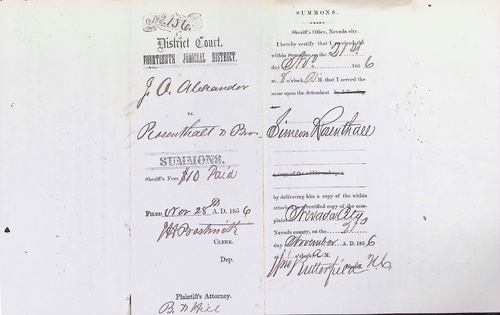 No. 156.
District Court.
FOURTEENTH JUDICIAL DISTRICT.
J. O. Alexander
vs.
Rosenthall & Bro.
SUMMONS.
Sheriff's Fees $10 Paid
FILED Nov 28th A. D. 1856
CLERK.
Dep.
Plaintiff's Attorney.
SUMMONS.
Sheriff's Office, Nevada city.
I hereby certify that I received the
within Summons on the 21st
day Nov. 1856
at 8 o'clock, A.M. that I served the
same upon the defendant by delivering
Simeon Rosenthall
a copy of the within and upon
by delivering him a copy of the within
attached to certified copy of the com-
plaint Nevada City
Nevada county, on the 21
day November A. D. 1856
at o'clock A M.
Butterfield